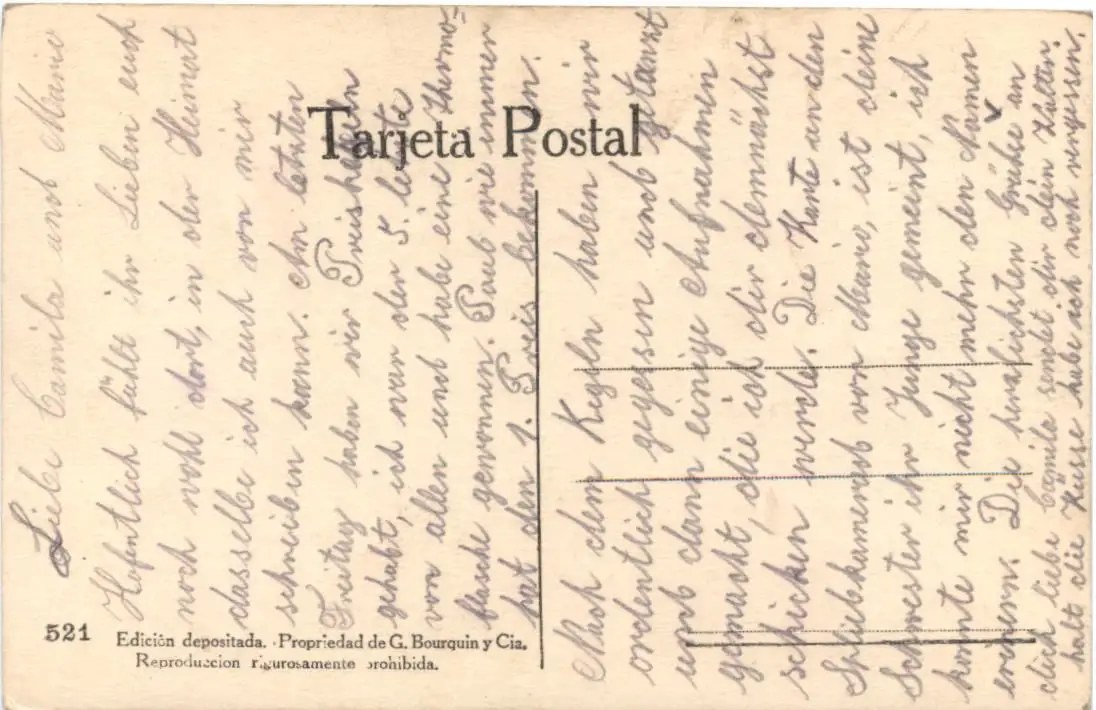 Tarjeta Postal
Liebe Camila und Marie
Hofentlich fühlt ihr Lieben euch
noch wohl dort, in der Heimat
dasselbe ich auch von mir
schreiben kann. Am letzten
Freitag haben wir Preiskegeln
gehabt, ich war der 5. letzte
von allen und habe eine Thermo=
flasche gewonnen. Paul wie immer
hat den 1. Preis bekommen.
Nach dem Kegeln haben wir
ordentlich gegessen und getanzt
und dann einige Aufnahmen
gemacht, die ich dir demnächst
schicken werde. Die Karte an den
von Marie, ist deine
Schwester ihr Junge gemeint, ich
konte mir nicht mehr den Namen
erinern. Die herzlichsten Grüße an
dich liebe Camila sendet dir dein
halt die Küsse habe ich noch vergessen.
521
Edición depositada. Propriedad de G. Bourquin y Cia.
Reproduccion rigurosamente prohibida.